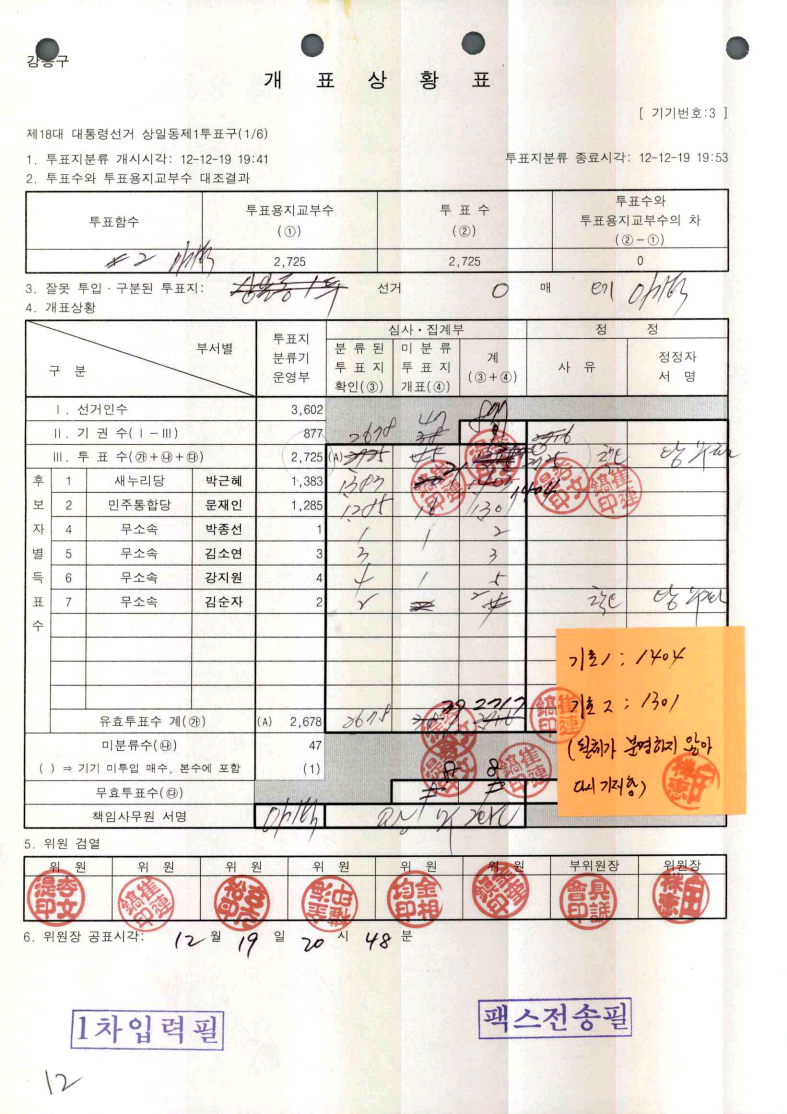 강동구
개 표 상 황 표
[ 기기번호:3 ]
제18대 대통령선거 상일동제1투표구(1/6)
1. 투표지분류 개시시각: 12-12-19 19:41 투표지분류 종료시각: 12-12-19 19:53
2. 투표수와 투표용지교부수 대조결과
투표함수 투표용지교부수 (①) 투 표 수 (②) 투표수와 투표용지교부수의 차 (②-①)
2 2,725 2,725 0
3. 잘못 투입·구분된 투표지: 선거 0 매
4. 개표상황
구 분 부서별 투표지 분류기 운영부 심사·집계부 정 정
분 류 된 투 표 지 확인(③) 미 분 류 투 표 지 개표(④) 계 (③+④) 사 유 정정자 서 명
Ⅰ. 선거인수 3,602
Ⅱ. 기 권 수(Ⅰ-Ⅲ) 877
2678 47
Ⅲ. 투 표 수(㉮+㉯+㉰) 2,725 (A)
후보자별득표수
1 새누리당 박근혜 1,383 1383 1404
2 민주통합당 문재인 1,285 1285 16 1301
4 무소속 박종선 1 1 1 2
5 무소속 김소연 3 3 3
6 무소속 강지원 4 4 1 5
7 무소속 김순자 2 2 2
유효투표수 계(㉮) (A) 2,678 2678 39 2717
미분류수(㉯) 47
( ) ⇒ 기기 미투입 매수, 본수에 포함 (1)
무효투표수(㉰) 8 8
책임사무원 서명
기호1 : 1404
기호 2 : 1301
(필체가 분명하지 않아
다시 기재함)
5. 위원 검열
위 원 위 원 위 원 위 원 위 원 위 원 부위원장 위원장
6. 위원장 공표시각: 12 월 19 일 20 시 48 분
1차입력필
팩스전송필
12